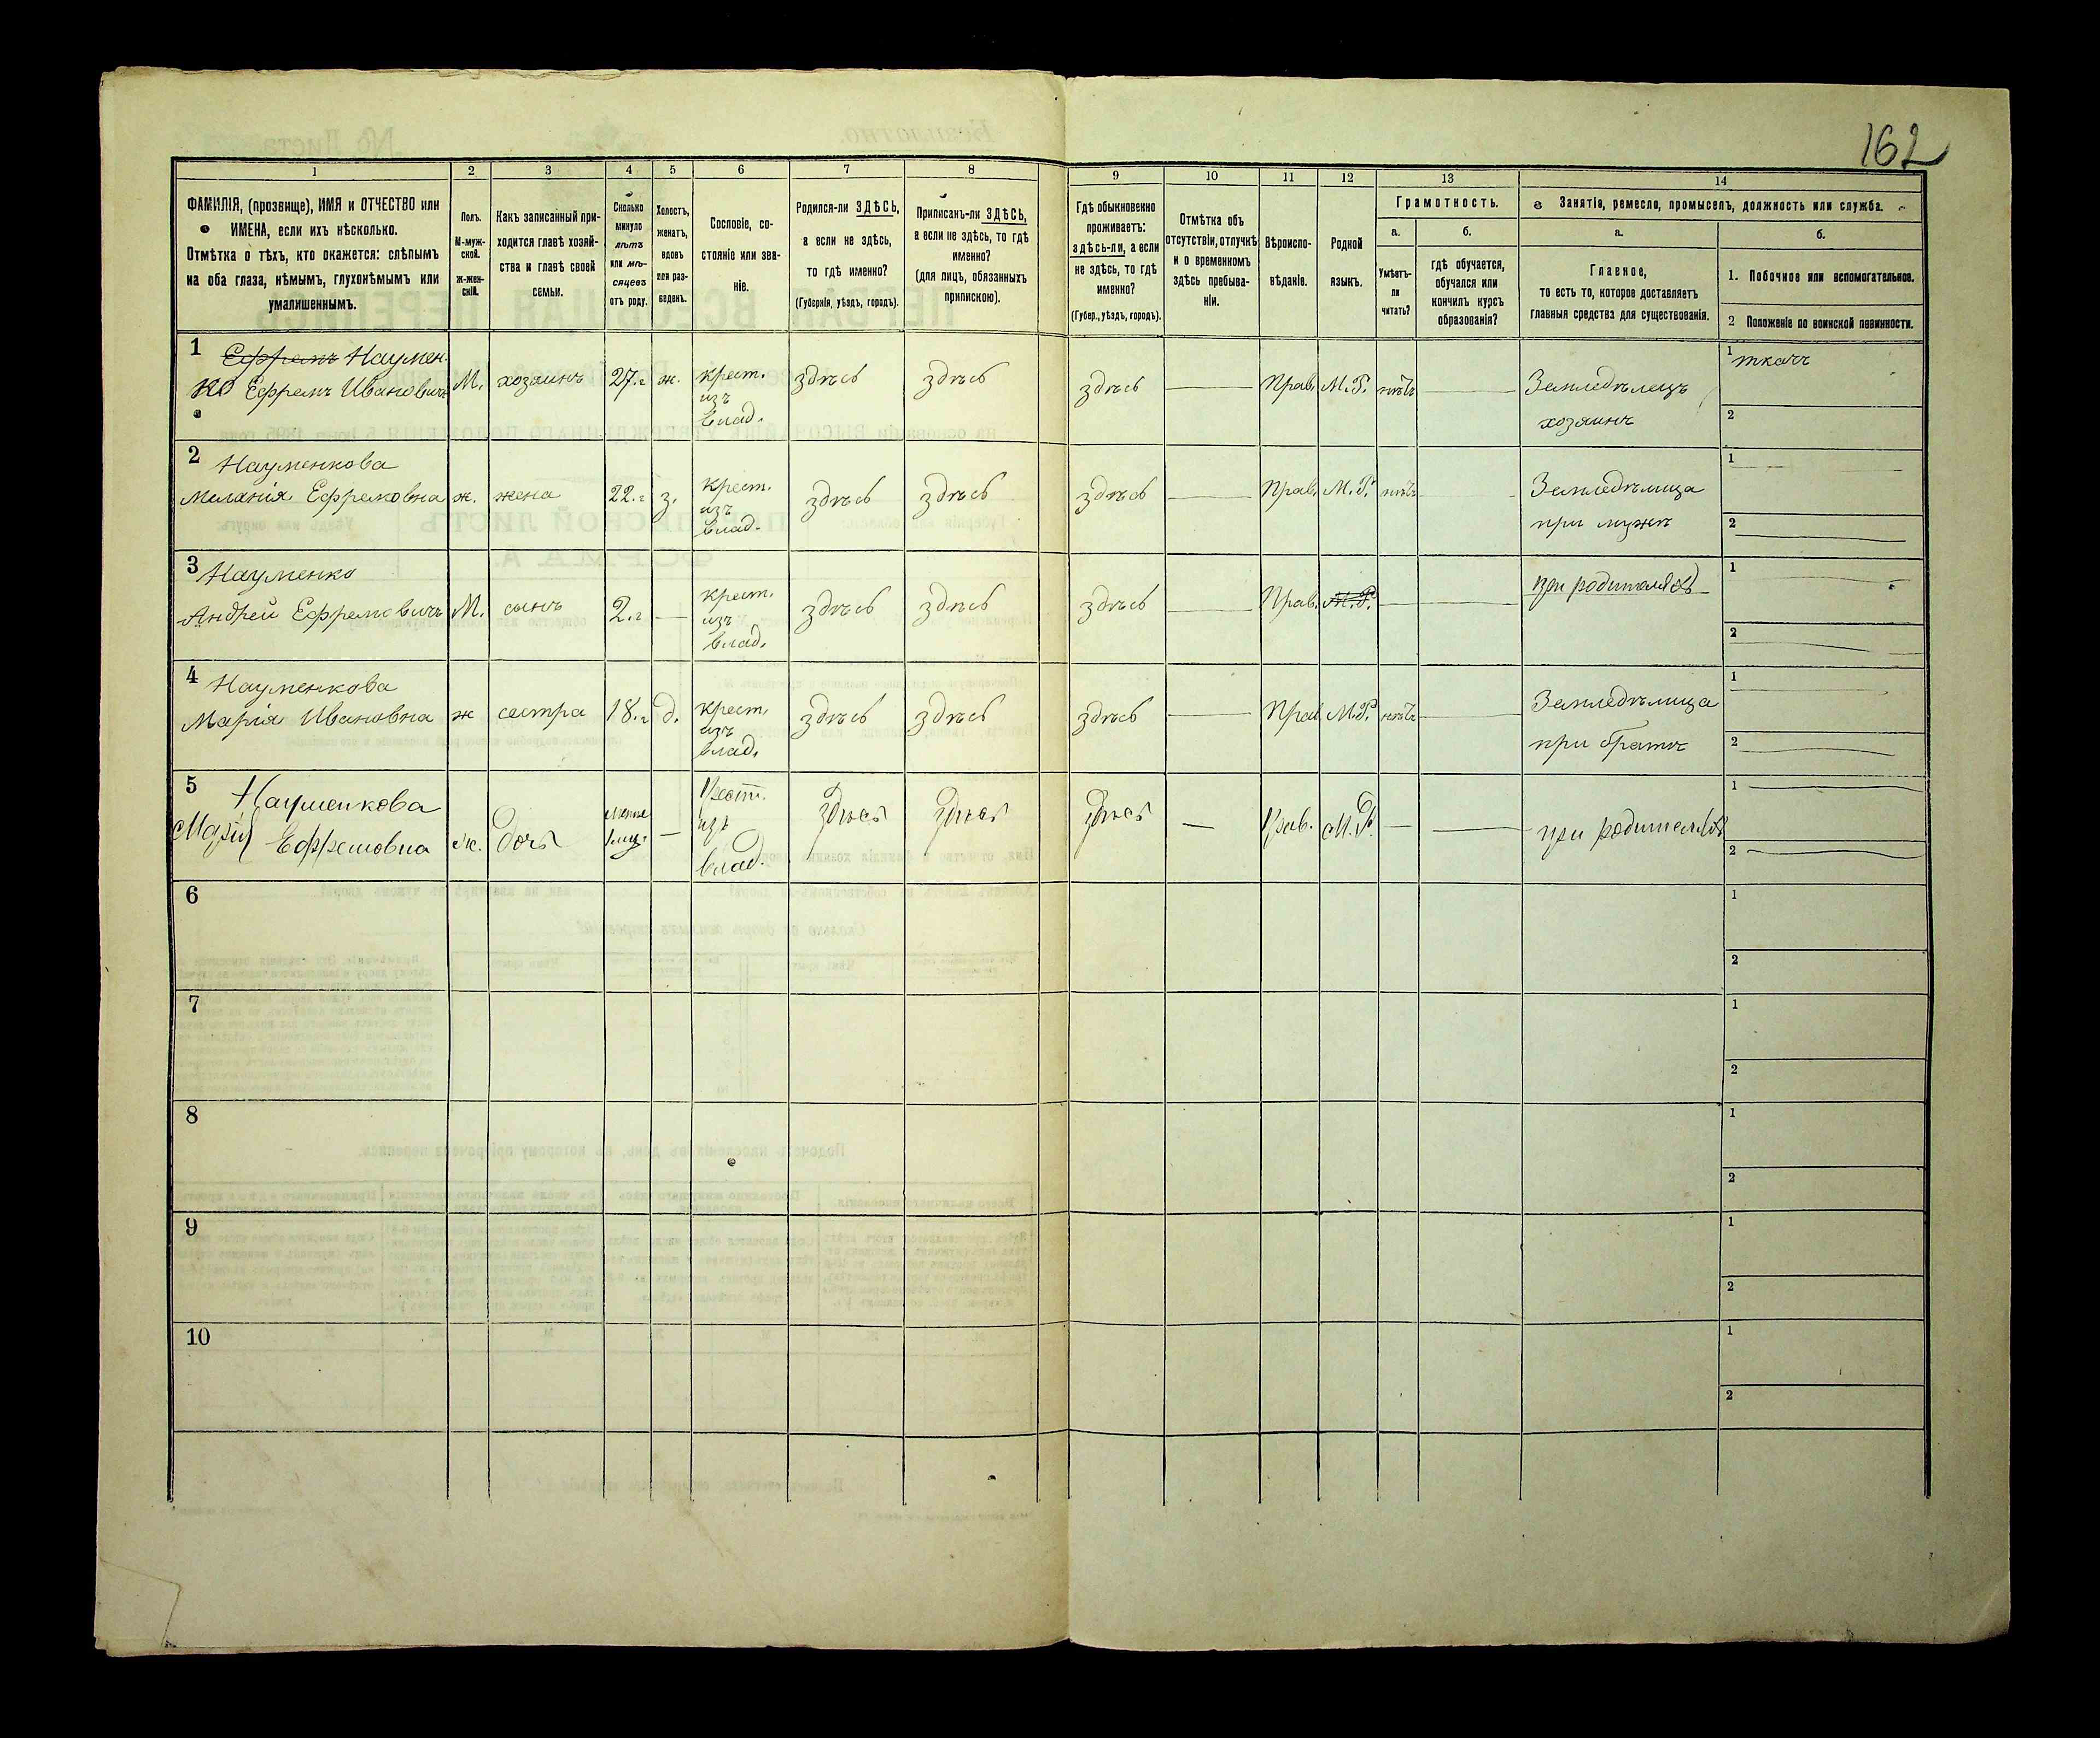 162
1
ФАМИЛІЯ, (прозвище), ИМЯ и ОТЧЕСТВО или
ИМЕНА, если ихъ нѣсколько.
Отмѣтка о тѣхъ, кто окажется: слѣпымъ
на оба глаза, нѣмымъ, глухонѣмымъ или
умалишеннымъ.
2
Полъ.
М-муж-
ской.
ж-жен-
скій.
3
Какъ записанный при-
ходится главѣ хозяй-
ства и главѣ своей
семьи.
4
Сколько
минуло
лѣтъ
или мѣ-
сяцевъ
отъ роду.
5
Холостъ,
женатъ,
вдовъ
или раз-
веденъ.
6
Сословіе, со-
стояніе или зва-
ніе.
7
Родился-ли ЗДѢСЬ,
а если не здѣсь,
то гдѣ именно?
(Губернія, уѣздъ, городъ).
8
Приписанъ-ли ЗДѢСЬ,
а если не здѣсь, то гдѣ
именно?
(для лицъ, обязанныхъ
припискою).
9
Гдѣ обыкновенно
проживаетъ:
здѣсь-ли, а если
не здѣсь, то гдѣ
именно?
(Губер., уѣздъ, городъ).
10
Отмѣтка объ
отсутствіи, отлучкѣ
и о временномъ
здѣсь пребыва-
ніи.
11
Вѣроиспо-
вѣданіе.
12
Родной
языкъ.
13
Грамотность.
а.
Умѣетъ-
ли
читать?
б.
гдѣ обучается,
обучался или
кончилъ курсъ
образованія?
14
Занятіе, ремесло, промыселъ, должность или служба.
а.
Главное,
то есть то, которое доставляетъ
главныя средства для существованія.
б.
1. Побочное или вспомогательное.
2 Положеніе по воинской повинности.
1 Ефремъ Наумен-
ко Ефремъ Ивановичъ
М. хозяинъ 27.г ж.
крест.
изъ
влад.
здѣсь здѣсь здѣсь — Прав. М.Р. нѣтъ —
Земледѣлецъ
хозяинъ
1 ткачъ
2
2 Науменкова
Меланія Ефремовна
ж. жена 22.г з.
крест.
изъ
влад.
здѣсь здѣсь здѣсь — Прав. М.Р. нѣтъ —
Земледѣлица
при мужѣ
1 —
2 —
3 Науменко
Андрей Ефремовичъ
М. сынъ 2.г —
крест.
изъ
влад.
здѣсь здѣсь здѣсь — Прав. М.Р. — —
при родителяхъ
1 —
2 —
4 Науменкова
Марія Ивановна
ж сестра 18.г д.
крест.
изъ
влад.
здѣсь здѣсь здѣсь — Прав. М.Р. нѣтъ —
Земледѣлица
при братѣ
1 —
2 —
5 Науменкова
Марія Ефремовна
ж. дочь
менѣе
1 мц. —
Крест.
изъ
влад.
здѣсь здѣсь здѣсь — Прав. М.Р. — —
при родителяхъ
1 —
2 —
6
1
2
7
1
2
8
1
2
9
1
2
10
1
2